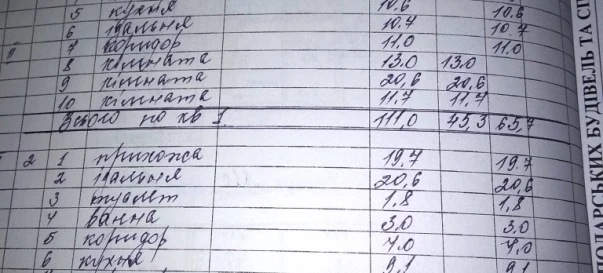 5 кухня 10.6 10.6
6 їдальня 10.7 10.7
II 7 коридор 11.0 11.0
8 кімната 13.0 13.0
9 кімната 20,6 20,6
10 кімната 11.7 11.7
Всього по кв 1 111,0 45,3 65,7
2 1 прихожа 19.7 19.7
2 їдальня 20,6 20,6
3 туалет 1,8 1,8
4 ванна 3,0 3,0
5 коридор 7,0 7,0
6 кухня 9,1 9,1
ПОДАРСЬКИХ БУДІВЕЛЬ ТА СП